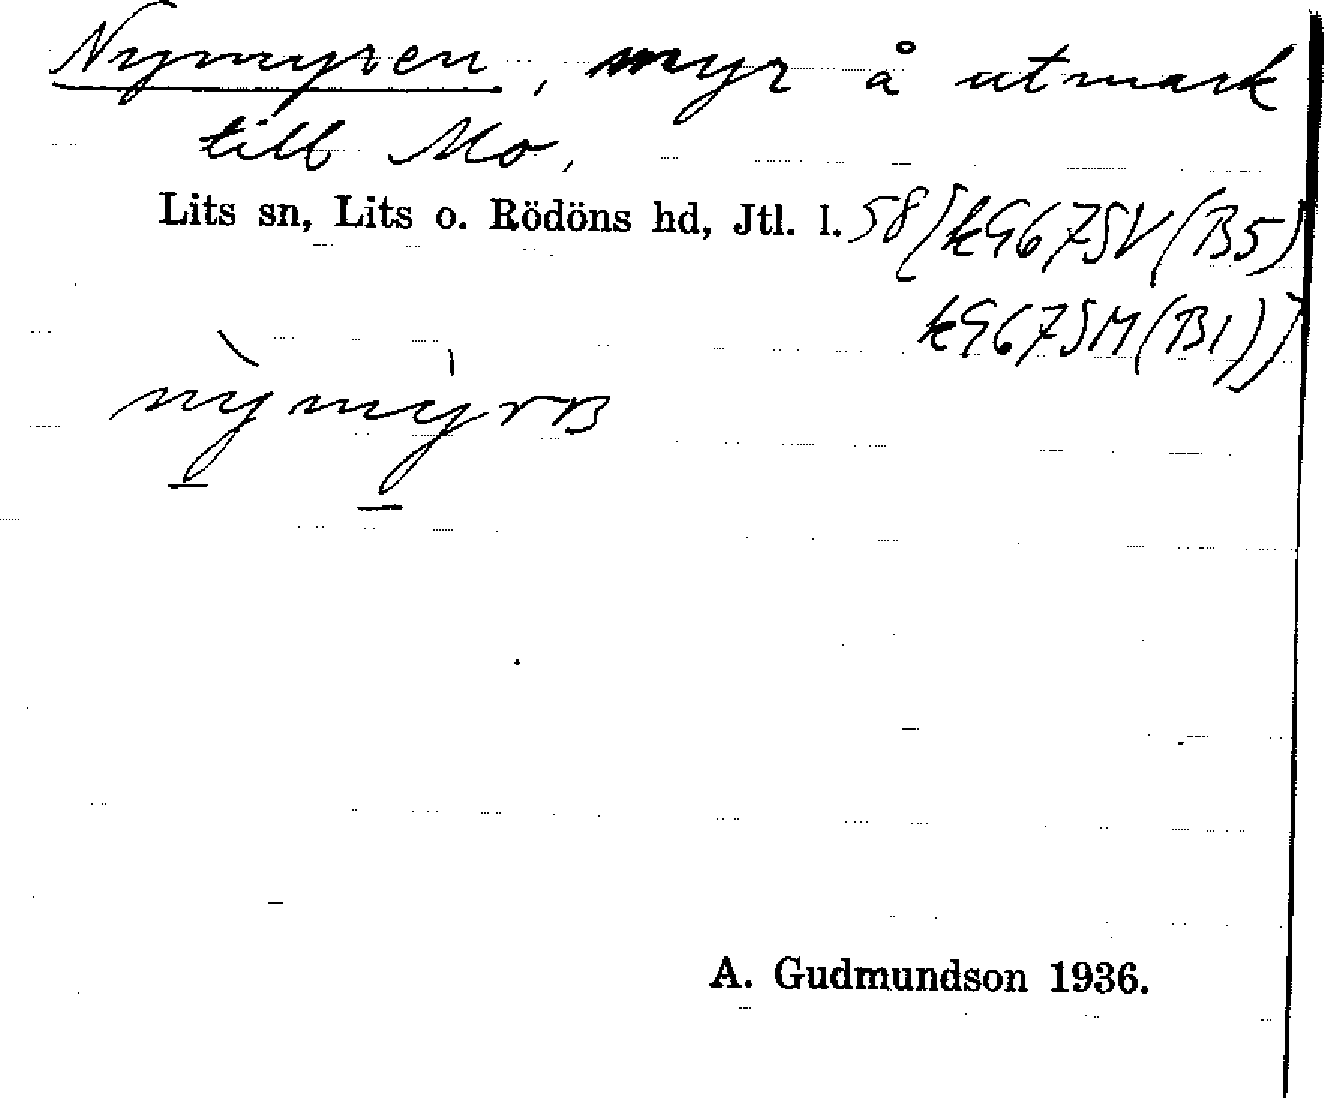 Nymyren, myr å utmark
till Mo.
Lits sn, Lits o. Rödöns hd, Jtl. l. 58 (k967SV (B5)
k967SM (B1))
nỳmýrʙ
A. Gudmundson 1936.